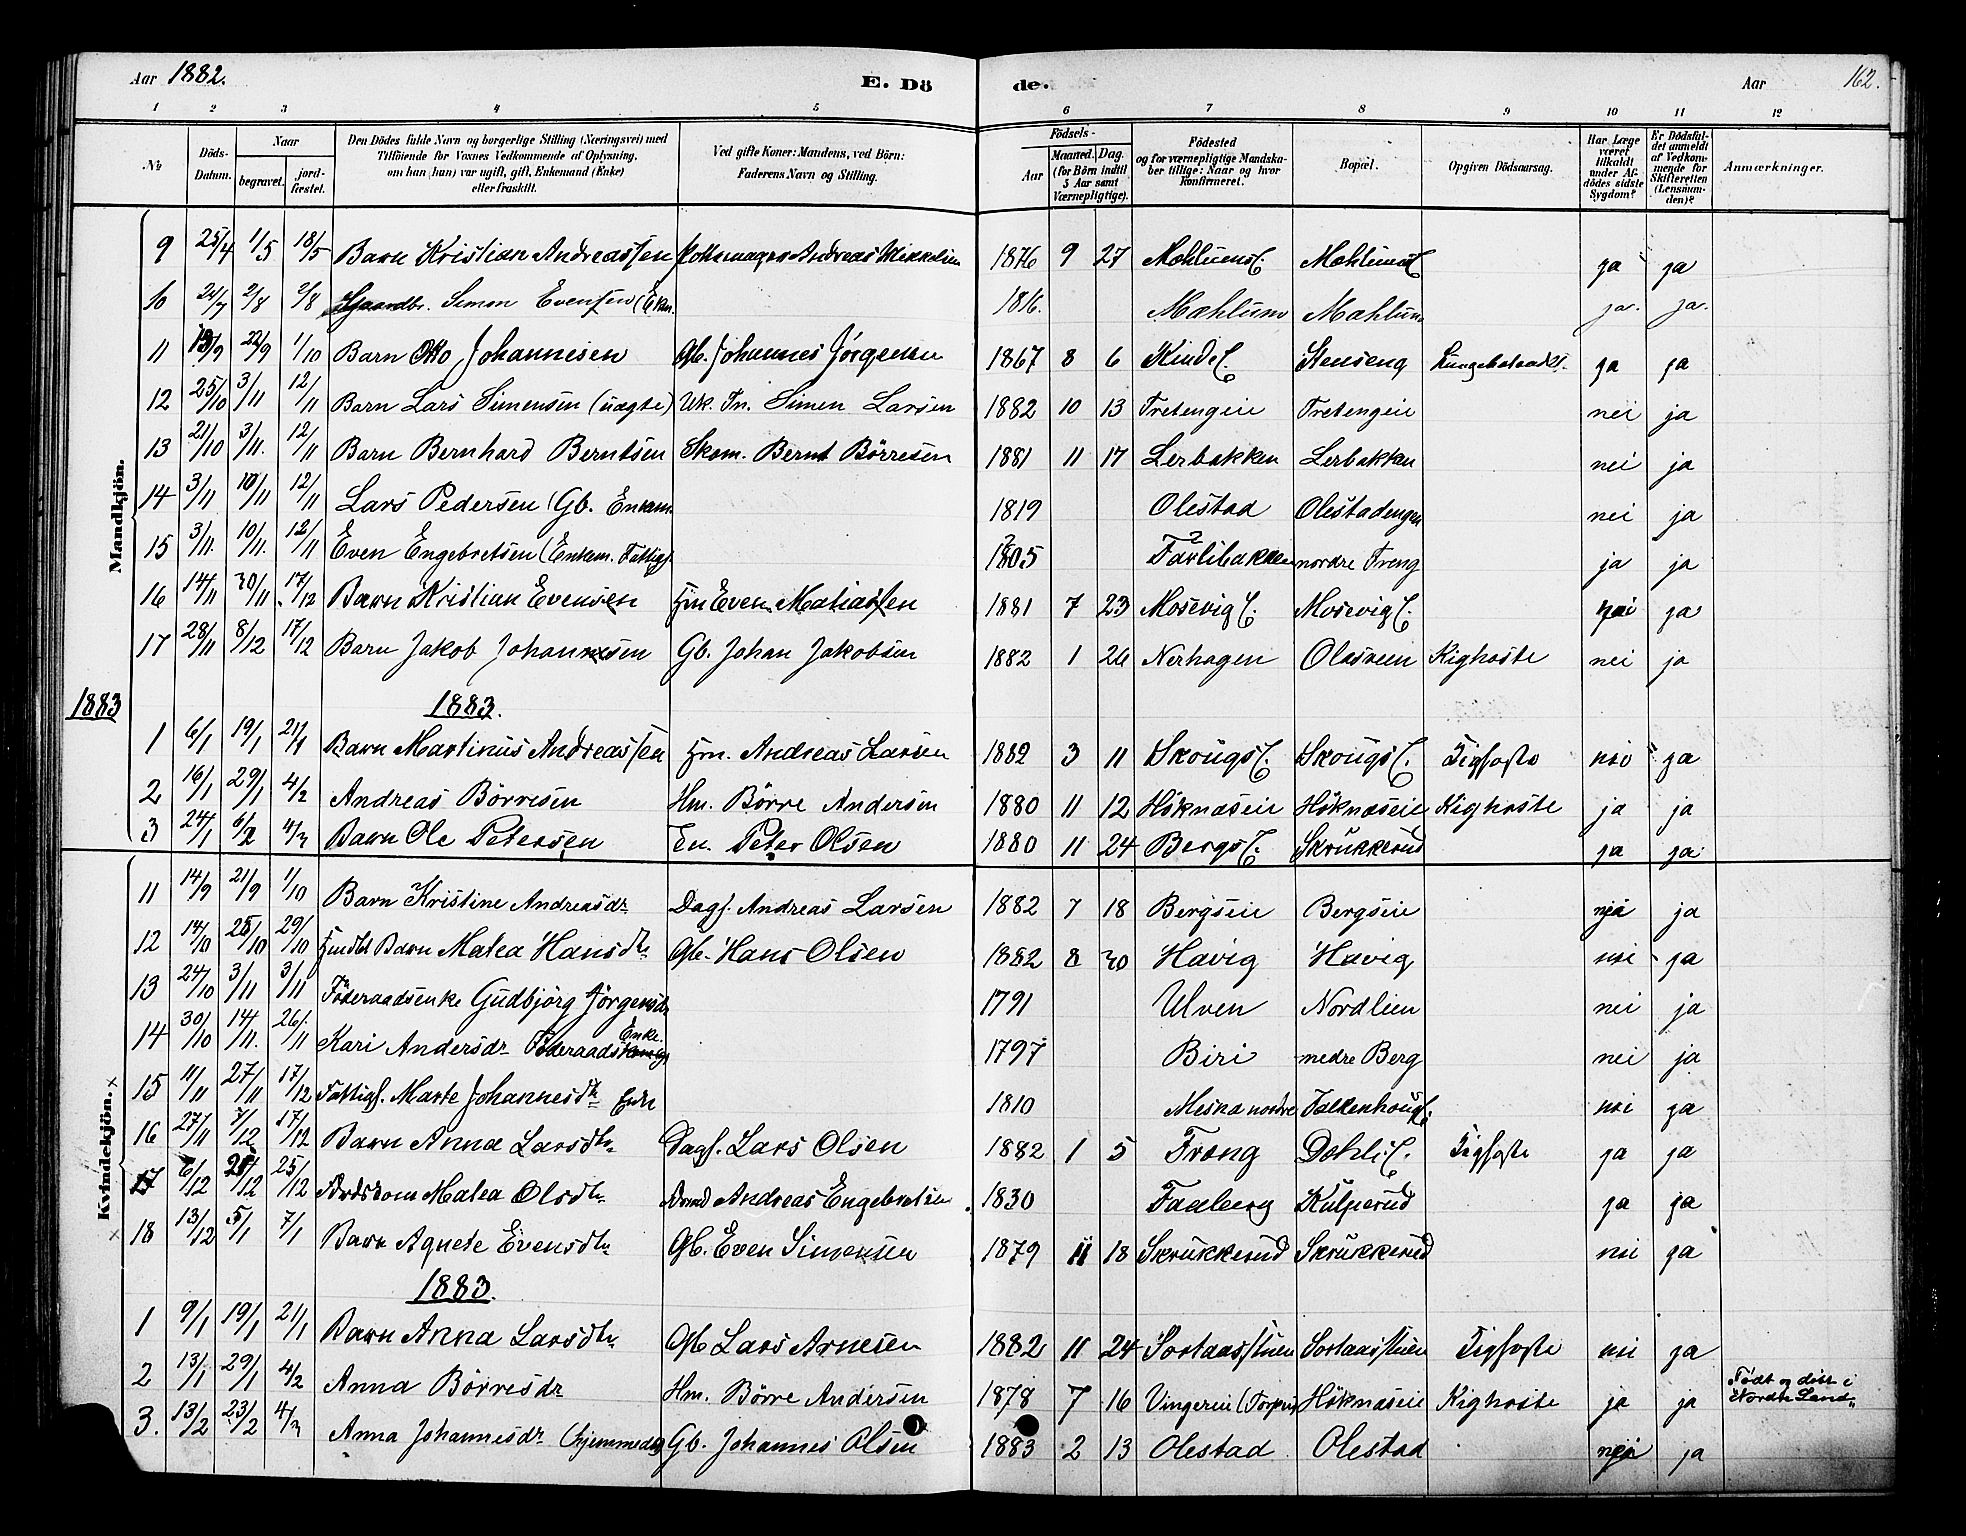 Aar 1882. E. Dö de. Aar 162.
1 2 3 4 5 6 7 8 9 10 11 12
No
Döds-Datum.
Naar
begravet.
jordfæstet.
Den Dödes fulde Navn og borgerlige Stilling (Næringsvei) med
Tilföiende for Voxnes Vedkommende af Oplysning,
om han (hun) var ugift, gift, Enkemand (Enke)
eller fraskilt.
Ved gifte Koner: Mandens, ved Börn:
Faderens Navn og Stilling.
Födsels-
Aar
Maaned. Dag.
(for Börn indtil
5 Aar samt
Værnepligtige).
Födested
og for værnepligtige Mandska-
ber tillige: Naar og hvor
konfirmeret.
Bopæl.
Opgiven Dödsaarsag.
Har Læge
været
tilkaldt
under Af-
dödes sidste
Sygdom?
Er Dödsfal-
det anmeldt
af Vedkom-
mende for
Skifteretten
(Lensman-
den)?
Anmærkninger.
Mandkjön.
9 25/4 1/5 18/5 Barn Kristian Andreassen Andreas Mikkelsen 1876 9 27 ja ja
10 24/7 2/8 2/8 Gaardbr. Simon Evensen (Ekm. 1816. Mæhlum Mæhlum ja. ja.
11 13/9 22/9 1/10 Barn Otto Johannesen Gb. Johannes Jörgensen 1867 8 6 Stenseng ja ja
12 25/10 3/11 12/11 Barn Lars Simensen (uægte) Uk. Tn. Simen Larsen 1882 10 13 Tretengeie Tretengeie nei ja
13 21/10 3/11. 12/11 Barn Bernhard Berntsen Skom. Bernt Börresen 1881 11 17 Lerbakken Lerbakken nei ja
14 3/11 10/11 12/11 Lars Pedersen (Gb. Enkem. 1819 Olestad Olestadengen nei ja
15 3/11. 10/11. 12/11 Even Engebretsen (Enkem. Fattigl. 1805 nordre Træng ja ja
16 14/11 30/11 17/12 Barn Kristian Evensen Hm Even Mathiassen 1881 7 23 Mosevig E. Mosevig E. nei ja
17 28/11 8/12 17/12 Barn Jakob Johannesen Gb. Johan Jakobsen 1882 1 26 Nerhagen Olasveen Kighoste nei ja
1883 1883.
1 6/1 19/1 21/1 Barn Martinus Andreassen Hm. Andreas Larsen 1882 3 11 Skougs E. Skougs E. Kighoste nei ja
2 16/1 29/1 4/2 Andreas Börresen Hm. Börre Andersen 1880 11 12 Höknæseie Höknæseie Kighoste ja ja
3 24/1 6/2 4/3 Barn Ole Petersen En. Peter Olsen 1880 11 24 Bergs E. Skrukkerud ja ja
Kvindekjön.
11 14/9 21/9 1/10 Barn Kristine Andreasdr Dagl. Andreas Larsen 1882 7 18 Bergseie Bergseie nei ja
12 14/10 25/10 29/10 Barn Matea Hansdtr Gb. Hans Olsen 1882 8 30 Hævig Hævig nei ja
13 24/10 3/11 3/11 Föderaadsenke Gudbjörg Jörgensdr 1791 Ulven Nordlien nei ja
14 30/10 14/11. 26/11 Kari Andersdr Föderaads Enke. 1797 Biri nedre Berg nei ja
15 11/11 27/11 17/12 Fattigl. Marte Johannesdtr Enke 1810 Mesna nordre nei ja
16 27/11 7/12 17/12 Barn Anna Larsdtr Dagl. Lars Olsen 1882 1 5 Træng Dæhli E. Kighoste ja ja
17 6/12 12 25/12 Matea Olsdtr Andreas Engebretsen 1830 Faaberg Kulperud ja ja
18 13/12 5/1 7/1 Barn Agnete Evensdtr Gb. Even Simensen 1879 11 18 Skrukkerud Skrukkerud nei ja
1883.
1 9/1 19/1 21/1 Barn Anna Larsdtr Gb Lars Arnesen 1882 11 24 Sortaasstuen Sortaasstuen Kighoste nei ja
2 13/1 29/1 4/2 Anna Börresdr Hm. Börre Andersen 1878 7 16 Höknæseie Kighoste ja ja Födt og döbt i Nordre Land.
3. 13/2 23/2 4/3 Anna Johannesdr (hjemmedöbt Gb. Johannes Olsen 1883 2 13 Olestad Olestad nei ja